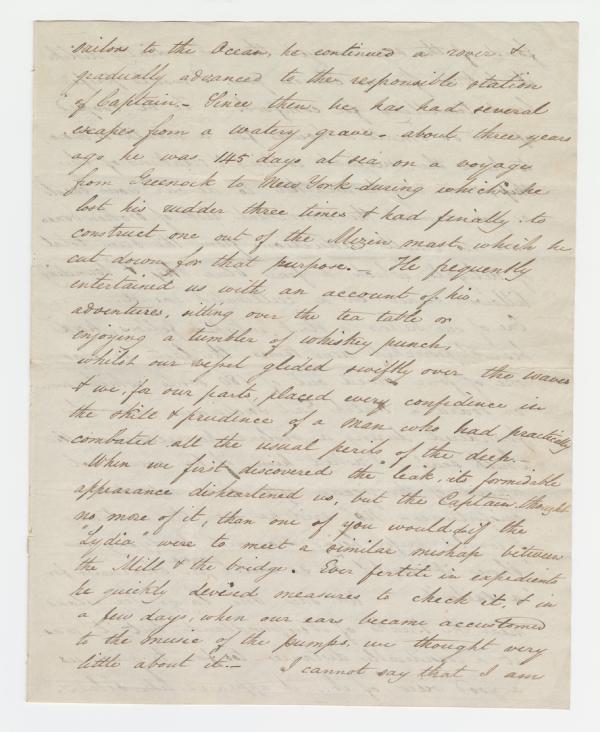 sailors to the Ocean, he continued a rover &
gradually advanced to the responsible station
of Captain. – Since then he has had several
escapes from a watery grave – about three years
ago he was 145 days at sea on a voyage
from Greenock to New York during which he
lost his rudder three times & had finally to
construct one out of the Mizen mast, which he
cut down for that purpose. – He frequently
entertained us with an account of his
adventures, sitting over the tea table or
enjoying a tumbler of whiskey punch,
whilst our vessel glided swiftly over the waves
& we, for our parts, placed every confidence in
the skill & prudence of a man who had practically
combated all the usual perils of the deep. –
When we first discovered the leak, its formidable
appearance disheartened us, but the Captain thought
no more of it, than one of you would if the
"Lydia" were to meet a similar mishap between
the Mill & the bridge. Ever fertile in expedients
he quickly devised measures to check it, & in
a few days, when our ears became accustomed
to the music of the pumps, we thought very
little about it. – I cannot say that I am